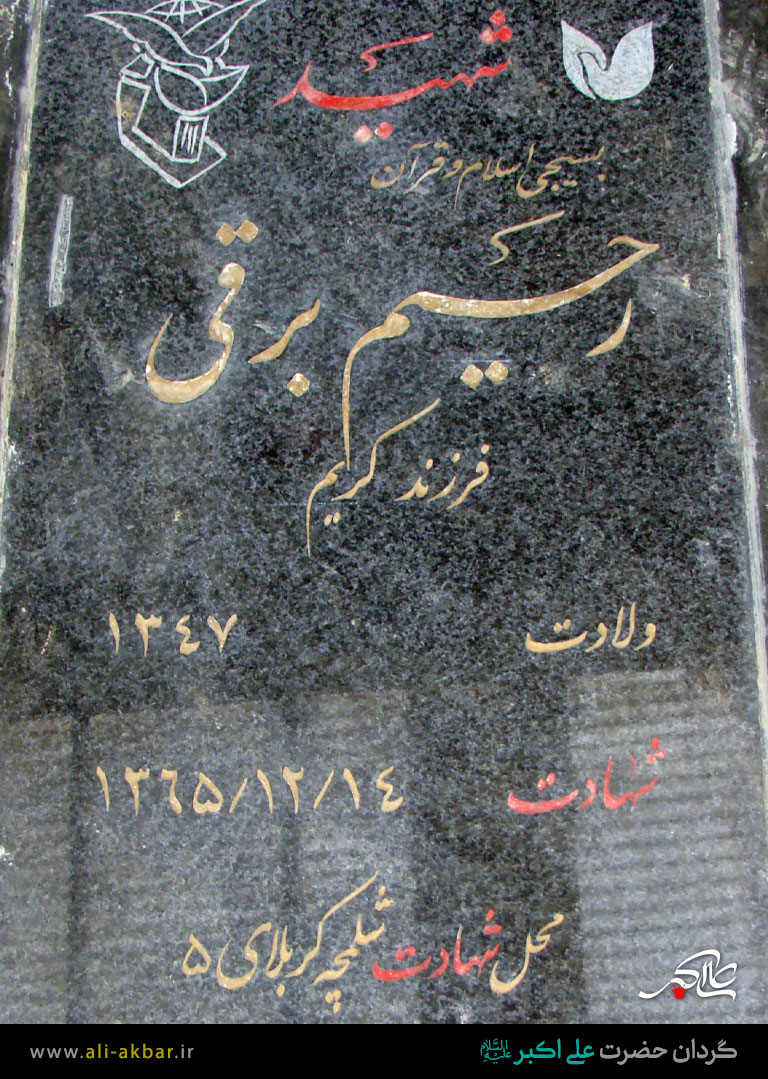 شهید
بسیجی اسلام و قرآن
رحیم برقی
فرزند کریم
ولادت ۱۳٤۷
شهادت ۱۳٦۵/۱۲/۱٤
محل شهادت شلمچه کربلای ۵
علی اکبر
گردان حضرت علی اکبر علیه السلام
www.ali-akbar.ir